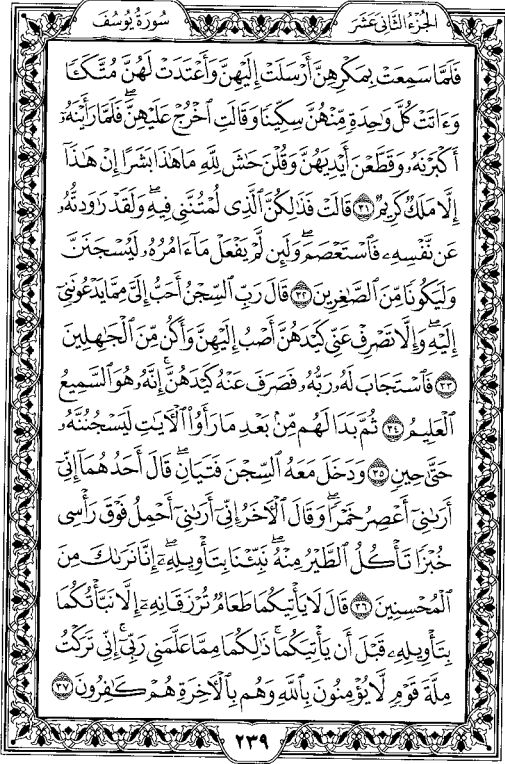 الجُزْءُ الثَّانِي عَشَرَ
سُورَةُ يُوسُفَ
فَلَمَّا سَمِعَتْ بِمَكْرِهِنَّ أَرْسَلَتْ إِلَيْهِنَّ وَأَعْتَدَتْ لَهُنَّ مُتَّكَـًٔا
وَءَاتَتْ كُلَّ وَٰحِدَةٍ مِّنْهُنَّ سِكِّينًا وَقَالَتِ ٱخْرُجْ عَلَيْهِنَّ ۖ فَلَمَّا رَأَيْنَهُۥٓ
أَكْبَرْنَهُۥ وَقَطَّعْنَ أَيْدِيَهُنَّ وَقُلْنَ حَٰشَ لِلَّهِ مَا هَٰذَا بَشَرًا إِنْ هَٰذَآ
إِلَّا مَلَكٌ كَرِيمٌ ٣١ قَالَتْ فَذَٰلِكُنَّ ٱلَّذِى لُمْتُنَّنِى فِيهِ ۖ وَلَقَدْ رَٰوَدتُّهُۥ
عَن نَّفْسِهِۦ فَٱسْتَعْصَمَ ۖ وَلَئِن لَّمْ يَفْعَلْ مَآ ءَامُرُهُۥ لَيُسْجَنَنَّ
وَلَيَكُونًا مِّنَ ٱلصَّٰغِرِينَ ٣٢ قَالَ رَبِّ ٱلسِّجْنُ أَحَبُّ إِلَىَّ مِمَّا يَدْعُونَنِىٓ
إِلَيْهِ ۖ وَإِلَّا تَصْرِفْ عَنِّى كَيْدَهُنَّ أَصْبُ إِلَيْهِنَّ وَأَكُن مِّنَ ٱلْجَٰهِلِينَ
٣٣ فَٱسْتَجَابَ لَهُۥ رَبُّهُۥ فَصَرَفَ عَنْهُ كَيْدَهُنَّ ۚ إِنَّهُۥ هُوَ ٱلسَّمِيعُ
ٱلْعَلِيمُ ٣٤ ثُمَّ بَدَا لَهُم مِّنۢ بَعْدِ مَا رَأَوُا۟ ٱلْـَٔايَٰتِ لَيَسْجُنُنَّهُۥ
حَتَّىٰ حِينٍ ٣٥ وَدَخَلَ مَعَهُ ٱلسِّجْنَ فَتَيَانِ ۖ قَالَ أَحَدُهُمَآ إِنِّىٓ
أَرَىٰنِىٓ أَعْصِرُ خَمْرًا ۖ وَقَالَ ٱلْـَٔاخَرُ إِنِّىٓ أَرَىٰنِىٓ أَحْمِلُ فَوْقَ رَأْسِى
خُبْزًا تَأْكُلُ ٱلطَّيْرُ مِنْهُ ۖ نَبِّئْنَا بِتَأْوِيلِهِۦٓ ۖ إِنَّا نَرَىٰكَ مِنَ
ٱلْمُحْسِنِينَ ٣٦ قَالَ لَا يَأْتِيكُمَا طَعَامٌ تُرْزَقَانِهِۦٓ إِلَّا نَبَّأْتُكُمَا
بِتَأْوِيلِهِۦ قَبْلَ أَن يَأْتِيَكُمَا ۚ ذَٰلِكُمَا مِمَّا عَلَّمَنِى رَبِّىٓ ۚ إِنِّى تَرَكْتُ
مِلَّةَ قَوْمٍ لَّا يُؤْمِنُونَ بِٱللَّهِ وَهُم بِٱلْـَٔاخِرَةِ هُمْ كَٰفِرُونَ ٣٧
٢٣٩